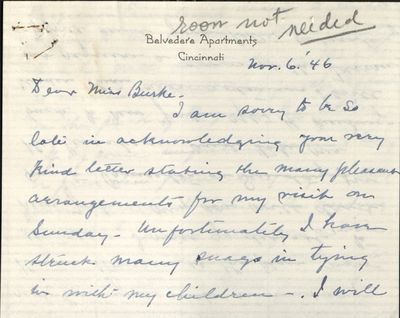 room not needed
Belvedere Apartments
Cincinnati
Nov. 6. '46
Dear Miss Burke -
I am sorry to be so
late in acknowledging your very
kind letter stating the many pleasant
arrangements for my visit on
Sunday - Unfortunately I have
struck many snags in tying
in with my children - . I will